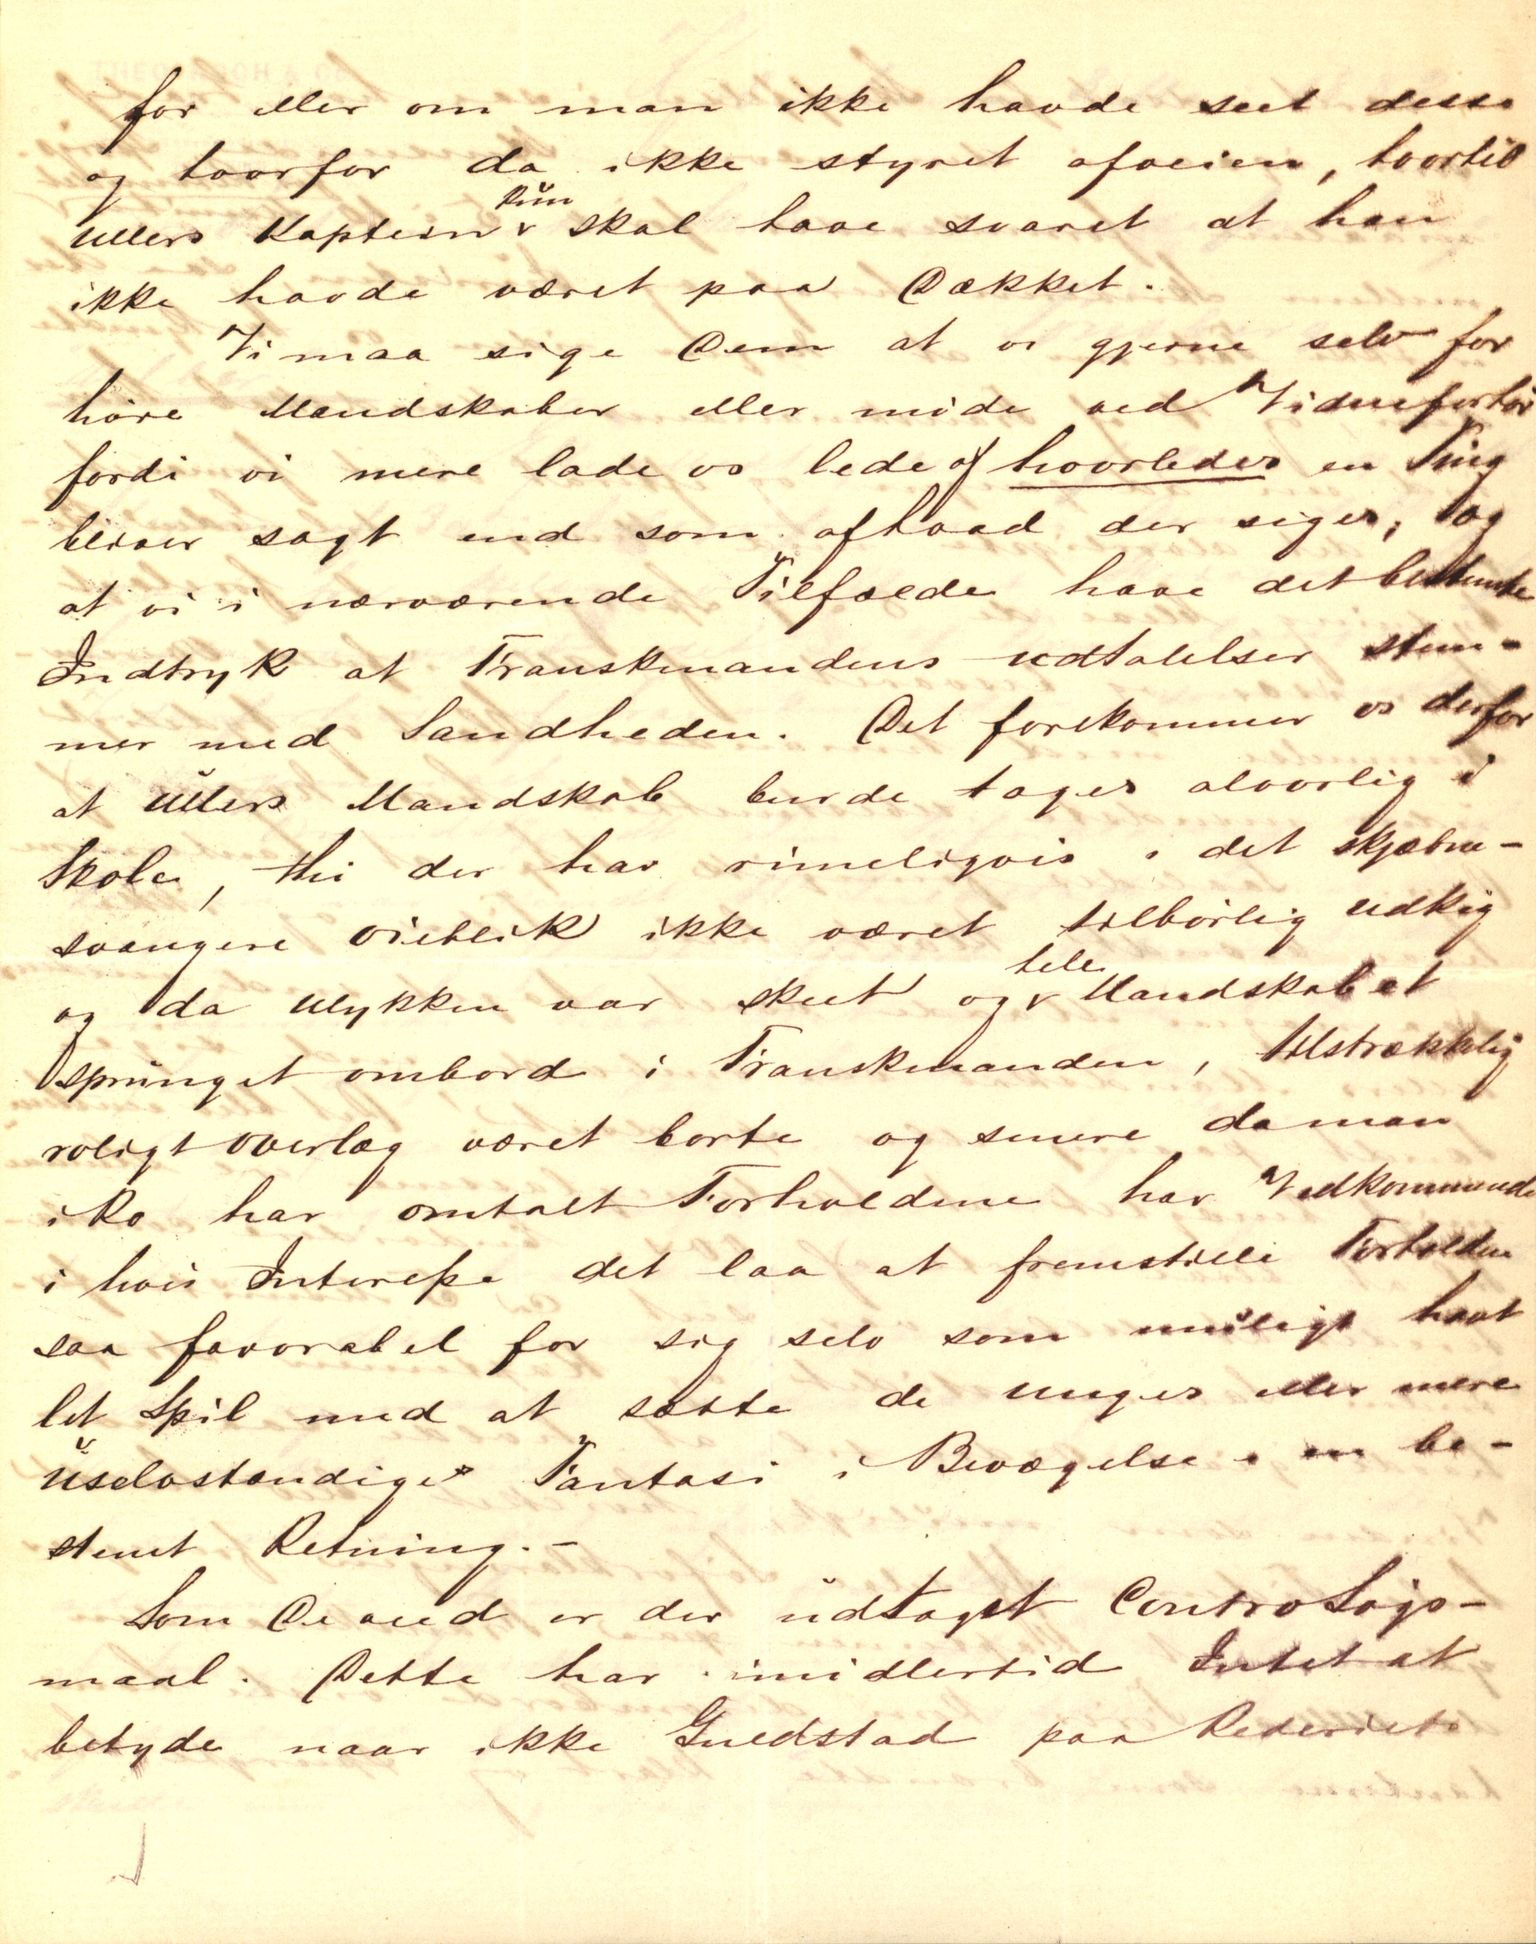 for eller om man ikke havde seet desse
og hvorfor da ikke styret afveien, hvortil
Ullers Kaptein kun skal have svaret at han
ikke havde været paa Dækket.
Vi maa sige Dem at vi gjerne selv for
höre Mandskaber eller möde ved Vidneforhör
fordi vi mere lade os lede af hvorledes en Ting
bliver sagt end som afhvad der siges, og
at vi i nærværende Tilfælde have det bestemte
Indtryk at Franskmandens udtalelser stem-
mer med Sandheden. Det forekommer os derfor
at Ullers Mandskab burde tages alvorlig i
Skole, thi der har rimeligvis i det skjæbne-
svangere öieblik ikke været tilbörlig udkig
og da Ulykken var skeet og hele Mandskabet
sprunget ombord i Franskmanden, tilstrækkelig
roligt overlæg været borte og senere da man
i Ro har omtalt Forholdene har Vedkommende
i hvis Interesse det laa at fremstille Forholdene
saa favorabel for sig selv som muligt havt
let Spil med at sætte de unges eller mere
uselvstændiges Fantasi i Bevægelse i en be-
stemt Retning. -
Som De ved er der udtaget Contra Søgs-
maal. Dette har imidlertid Intet at
betyde naar ikke Guldstad paa Rederiets